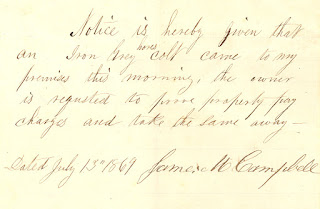 Notice is hereby given that
an Iron Grey horse colt came to my
premises this morning, the owner
is requsted to prove property pay
charges and take the same away —
Dated July 13th 1869 James M Campbell